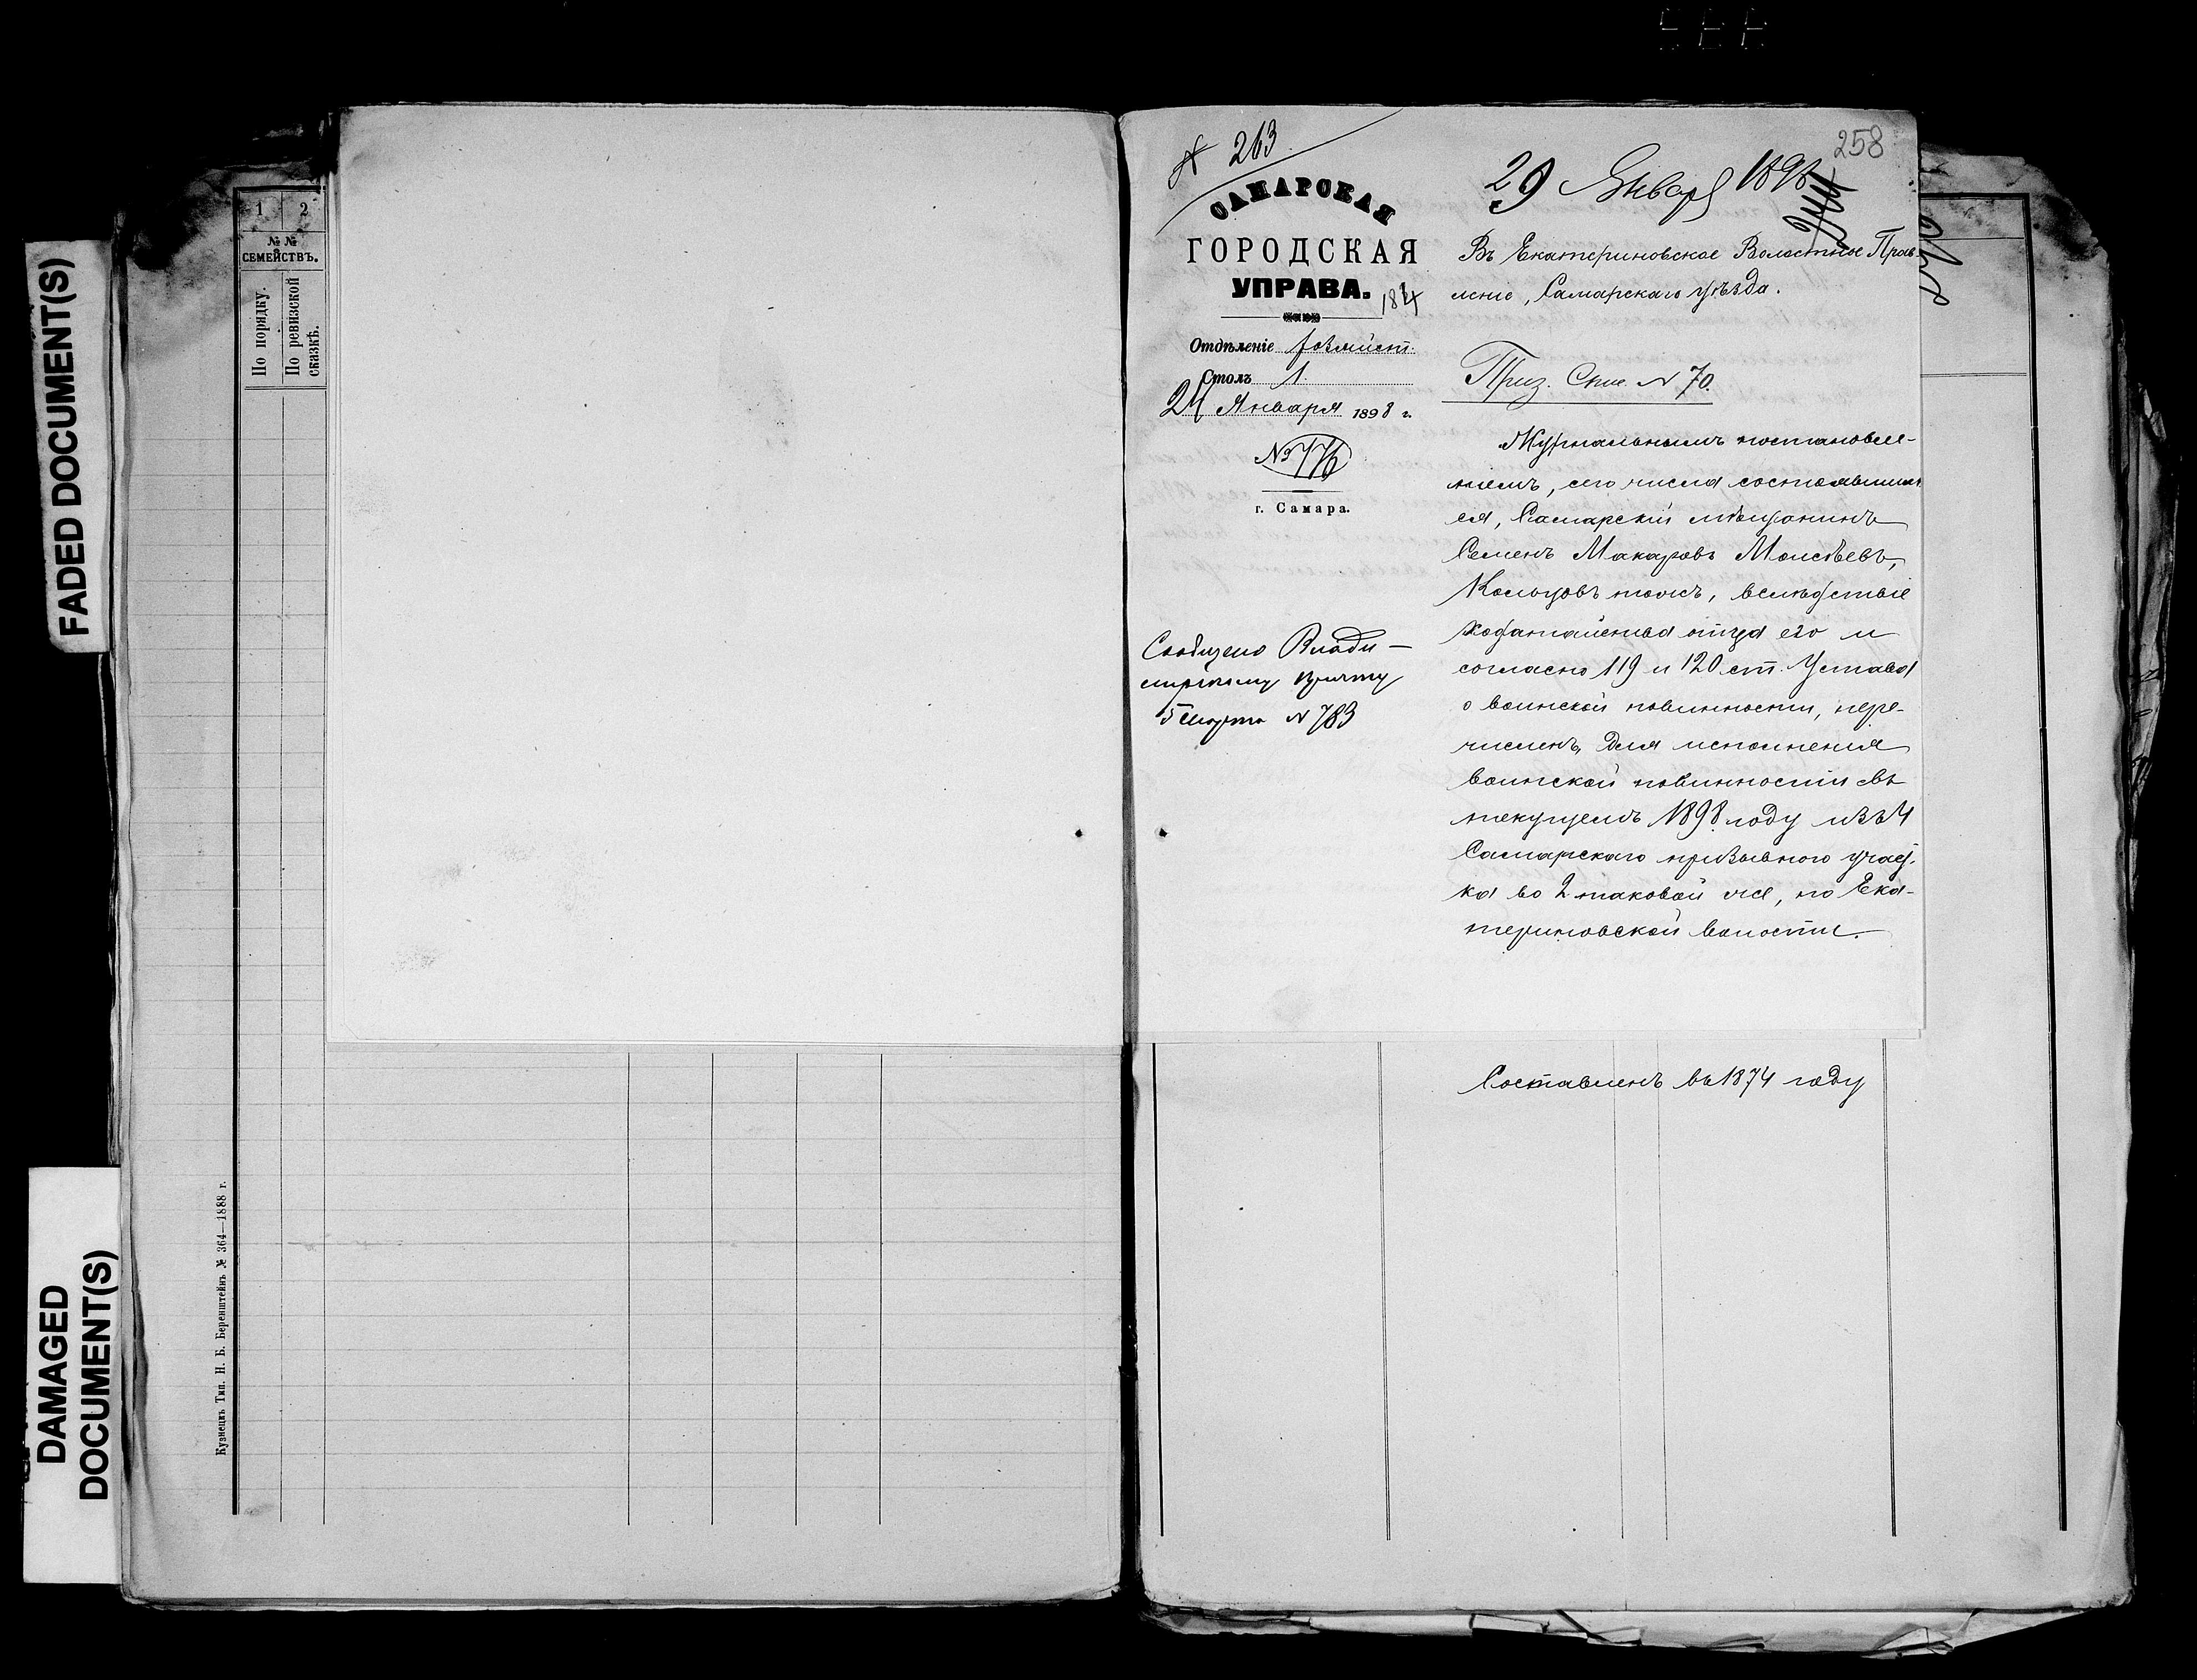 FADED DOCUMENT(S)
DAMAGED
DOCUMENT(S)
1 2
№ №
СЕМЕЙСТВЪ.
По порядку.
По ревизской
сказкѣ.
Кузнецкъ Тип. Н. Б. Беренштейнъ № 364—1888 г.
263
258
САМАРСКАЯ
ГОРОДСКАЯ
УПРАВА.
Отдѣленіе
Столъ 1.
24 Января 1898 г.
№ 776
г. Самара.
Сообщено Влади-
мірскому
5 Марта № 783
29 Января 1898
Въ Екатериновское Волостное Прав-
леніе, Самарскаго уѣзда.
Приз. Спис. № 70.
Журнальнымъ постановле-
ніемъ, сего числа состоявшим
ся, Самарскій мѣщанинъ
Семенъ Макаровъ Моисѣевъ,
Кольцовъ тожъ, вслѣдствіе
ходатайства отца его и
согласно 119 и 120 ст. Устава
о воинской повинности, пере-
численъ для исполненія
воинской повинности въ
текущемъ 1898 году изъ 4
Самарскаго призывного участ
ка во 2 таковой же, по Ека-
териновской волости.
Составленъ въ 1874 году